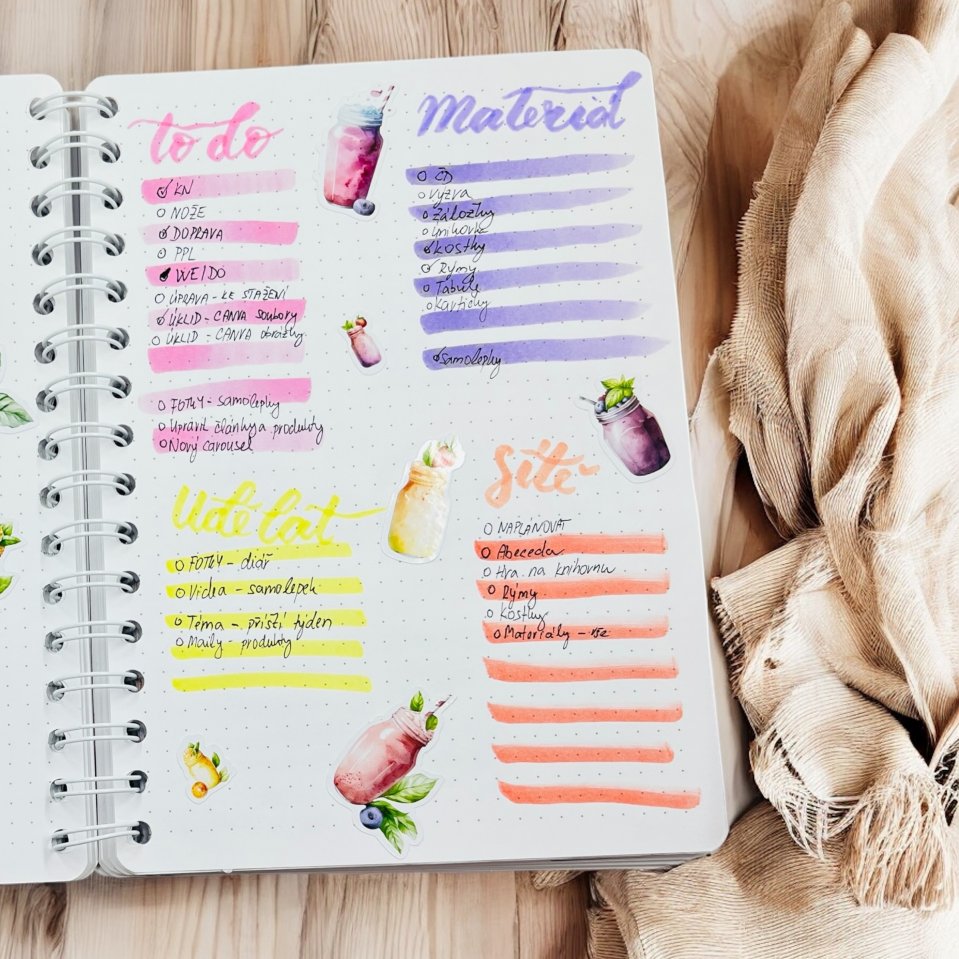 to do
KN
NOŽE
DOPRAVA
PPL
WEIDO
ÚPRAVA - KE STAŽENÍ
ÚKLID - CANVA soubory
ÚKLID - CANVA obrázky
FOTKY - samolepky
Upravit články a produkty
Nový carousel
Materiál
ČD
Výzva
Záložky
Knihovna
Kostky
Rýmy
Tabule
Kartičky
Samolepky
Udělat
FOTKY - diář
Videa - samolepek
Téma - příští týden
Maily - produkty
Sítě
NAPLÁNOVAT
Abeceda
Hra na knihovnu
Rýmy
Kostky
Materiály - vše